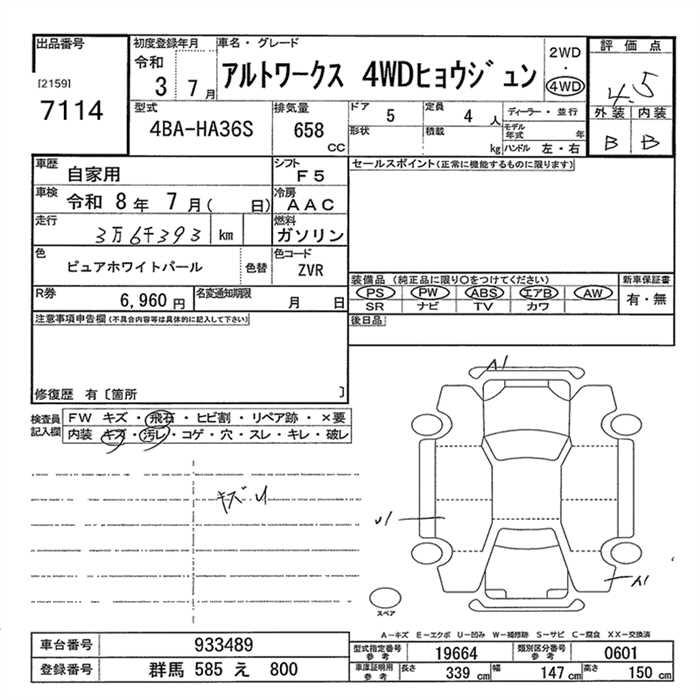 出品番号 初度登録年月 車名・グレード 2WD 評価点
[2159] 令和 アルトワークス 4WDヒョウジュン ・ 4.5
7114 3年 7月 4WD 外装 内装
型式 排気量 ドア 5 定員 4人 ディーラー・並行 B B
4BA-HA36S 658 cc 形状 積載 kg モデル年式 年 ハンドル 左・右
車歴 自家用 シフト F5 セールスポイント(正常に機能するものに限ります)
車検 令和 8年 7月( 日) 冷房 AAC
走行 3万6千393 km 燃料 ガソリン
色 ピュアホワイトパール 色替 色コード ZVR
装備品 (純正品に限り○をつけてください) 新車保証書
R券 6,960円 名変通知期限 月 日 PS PW ABS エアB AW 有・無
SR ナビ TV カワ
注意事項申告欄(不具合内容等は具体的に記入して下さい) 後日品
修復歴 有〔箇所 〕
検査員 FW キズ・飛石・ヒビ割・リペア跡・×要
記入欄 内装 キズ・汚レ・コゲ・穴・スレ・キレ・破レ
キズU
スペア
A-キズ E-エクボ U-凹み W-補修跡 S-サビ C-腐食 XX-交換済
車台番号 933489 型式指定番号 参考 19664 類別区分番号 参考 0601
登録番号 群馬 585 え 800 車庫証明用 参考 長さ 339 cm 幅 147 cm 高さ 150 cm